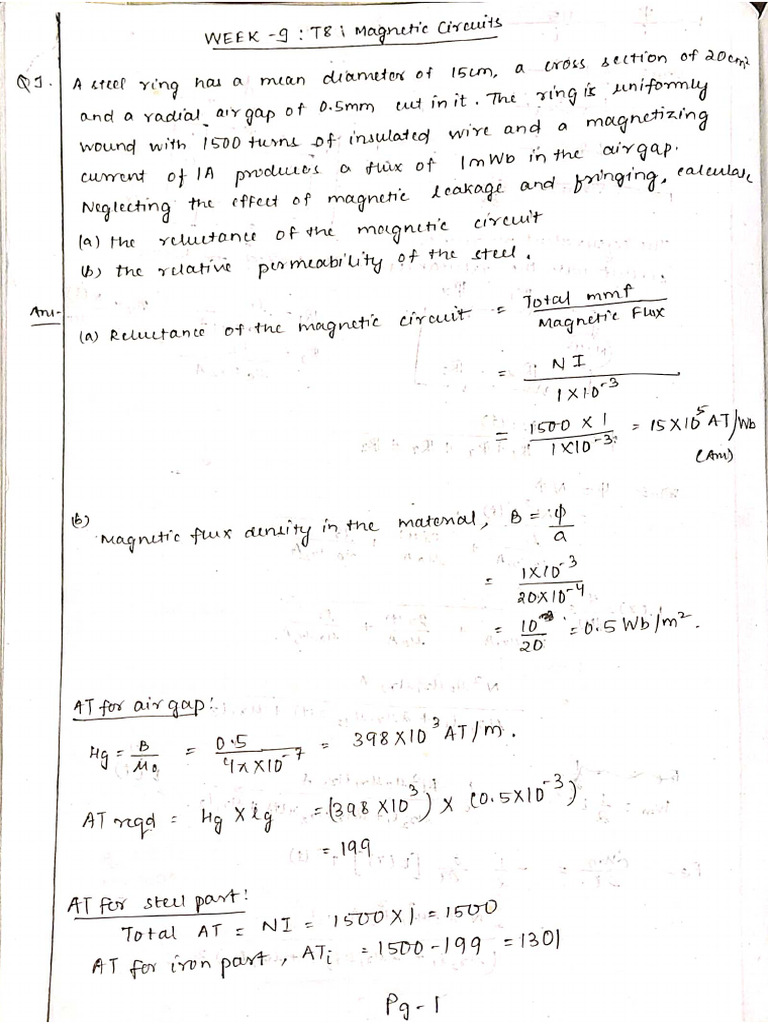 WEEK - 9 : T8 : Magnetic Circuits
Q1. A steel ring has a mean diameter of 15cm, a cross section of 20cm²
and a radial air gap of 0.5mm cut in it. The ring is uniformly
wound with 1500 turns of insulated wire and a magnetizing
current of 1A produces a flux of 1mWb in the air gap.
Neglecting the effect of magnetic leakage and fringing, calculate
(a) the reluctance of the magnetic circuit
(b) the relative permeability of the steel.
Ans- (a) Reluctance of the magnetic circuit = Total mmf / Magnetic Flux
= NI / 1×10⁻³
= 1500 × 1 / 1×10⁻³ = 15×10⁵ AT/Wb
(Ans)
(b) Magnetic flux density in the material, B = φ/a
= 1×10⁻³ / 20×10⁻⁴
= 10 / 20 = 0.5 Wb/m².
AT for air gap:
Hg = B/μ₀ = 0.5 / 4π×10⁻⁷ = 398×10³ AT/m.
AT reqd = Hg × lg = (398×10³) × (0.5×10⁻³)
= 199
AT for steel part:
Total AT = NI = 1500×1 = 1500
AT for iron part, ATi = 1500-199 = 1301
Pg-1